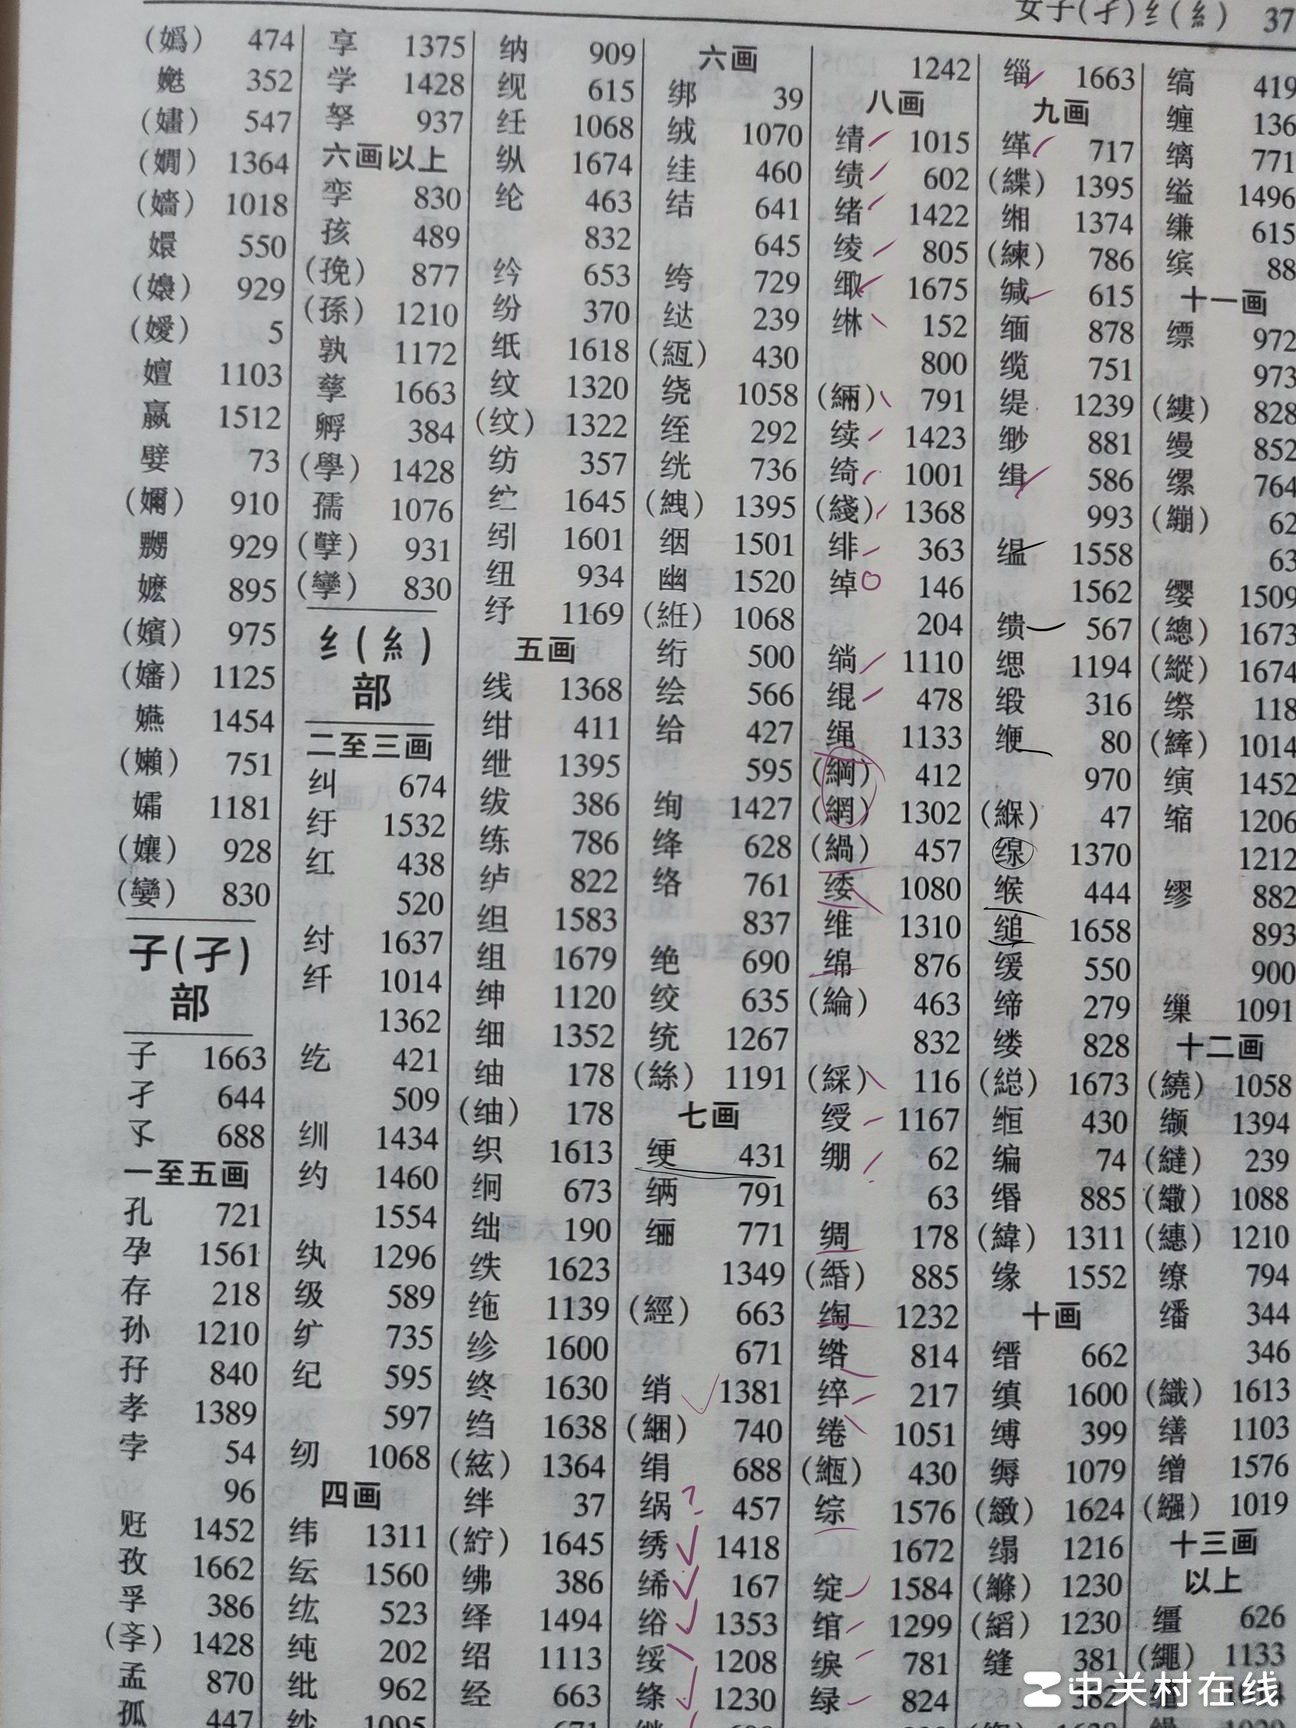 女子(孑)纟(糹) 37
(嬀) 474
嬎 352
(嫿) 547
(嫺) 1364
(嬙) 1018
嬛 550
(嬝) 929
(嬡) 5
嬗 1103
嬴 1512
嬖 73
(嬭) 910
嬲 929
嬷 895
(嬪) 975
(嬸) 1125
嬿 1454
(嬾) 751
孀 1181
(孃) 928
(孌) 830
子(孑)
部
子 1663
孑 644
孓 688
一至五画
孔 721
孕 1561
存 218
孙 1210
孖 840
孝 1389
孛 54
96
孜 1662
孚 386
(斈) 1428
孟 870
孤 447
享 1375
学 1428
孥 937
六画以上
孪 830
孩 489
(㝃) 877
(孫) 1210
孰 1172
孳 1663
孵 384
(學) 1428
孺 1076
(孼) 931
(孿) 830
纟(糹)
部
二至三画
纠 674
纡 1532
红 438
520
纣 1637
纤 1014
1362
纥 421
509
纼 1434
约 1460
1554
纨 1296
级 589
纩 735
纪 595
597
纫 1068
四画
纬 1311
纭 1560
纮 523
纯 202
纰 962
纱 1095
纳 909
纲 615
纴 1068
纵 1674
纶 463
832
紟 653
纷 370
纸 1618
纹 1320
(纹) 1322
纺 357
纻 1645
纼 1601
纽 934
纾 1169
五画
线 1368
绀 411
绁 1395
绂 386
练 786
纑 822
绐 1583
组 1679
绅 1120
细 1352
䌷 178
(䌷) 178
织 1613
䌹 673
绌 190
紩 1623
䌺 1139
纱 1600
终 1630
绉 1638
(絃) 1364
绊 37
(紵) 1645
绋 386
绎 1494
绍 1113
经 663
671
六画
绑 39
绒 1070
絓 460
结 641
645
绔 729
绕 239
(絚) 430
绕 1058
绖 292
絖 736
(絏) 1395
䌸 1501
幽 1520
(絍) 1068
绗 500
绘 566
给 427
595
绚 1427
绛 628
络 761
837
绝 690
绞 635
统 1267
(絲) 1191
七画
绠 431
緉 791
纚 771
1349
(經) 663
671
绡 1381
(綑) 740
绢 688
緺 457
绣 1418
绤 167
绤 1353
绥 1208
绦 1230
1242
八画
绪 1015
绩 602
绪 1422
绫 805
緅 1675
綝 152
800
(緉) 791
续 1423
绮 1001
(綫) 1368
绯 363
绰 146
204
绱 1110
绲 478
绳 1133
(綱) 412
(網) 1302
(緺) 457
緌 1080
维 1310
绵 876
(綸) 463
832
(綵) 116
绶 1167
绷 62
63
绸 178
(緡) 885
绹 1232
绺 814
綷 217
绻 1051
(緪) 430
综 1576
1672
绽 1584
绾 1299
綟 781
绿 824
缁 1663
九画
缂 717
(緤) 1395
缃 1374
(練) 786
缄 615
缅 878
缆 751
缇 1239
缈 881
缉 586
993
缊 1558
1562
缋 567
缌 1194
缎 316
缏 80
970
(緥) 47
線 1370
缑 444
缒 1658
缓 550
缔 279
缕 828
(総) 1673
緪 430
编 74
缗 885
(緯) 1311
缘 1552
十画
缙 662
缜 1600
缚 399
缛 1079
(緻) 1624
緆 1216
(縧) 1230
(縚) 1230
缝 381
382
缟 419
缠 136
缡 771
缢 1496
缣 615
缤 88
十一画
缥 972
973
(縷) 828
缦 852
缧 764
(繃) 62
63
缨 1509
(總) 1673
(縱) 1674
縩 118
(縴) 1014
縯 1452
缩 1206
1212
缪 882
893
900
缫 1091
十二画
(繞) 1058
缬 1394
(繨) 239
(繖) 1088
(繐) 1210
缭 794
繙 344
346
(織) 1613
缮 1103
缯 1576
(繦) 1019
十三画
以上
缰 626
(繩) 1133
中关村在线